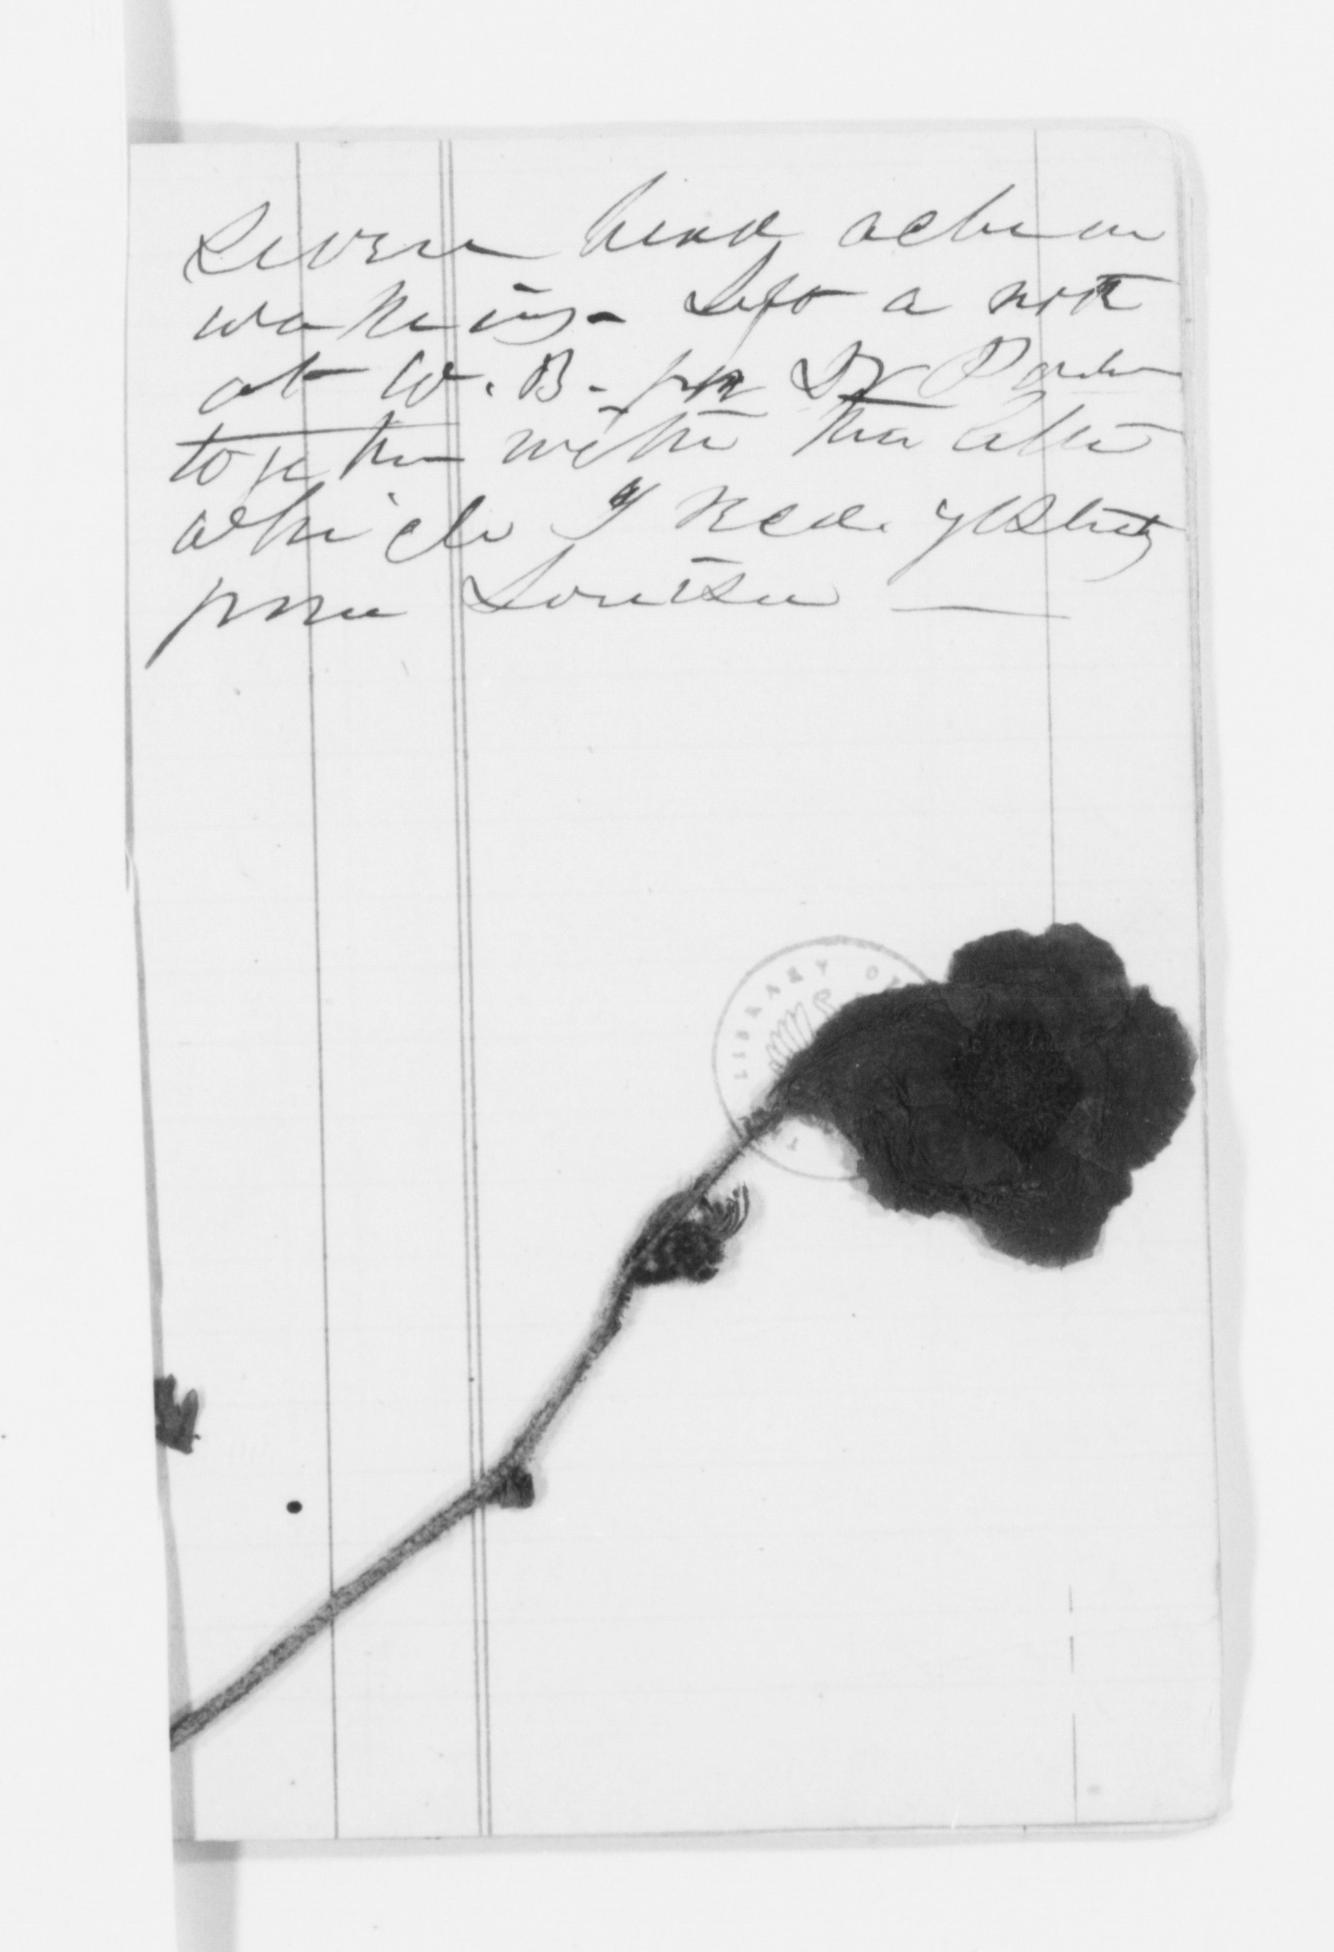 Severe head ache on
waking - Left a note
at W. B. for Dr Parker
together with the letter
which I recd. yesterday
from Louisa —
LIBRARY OF